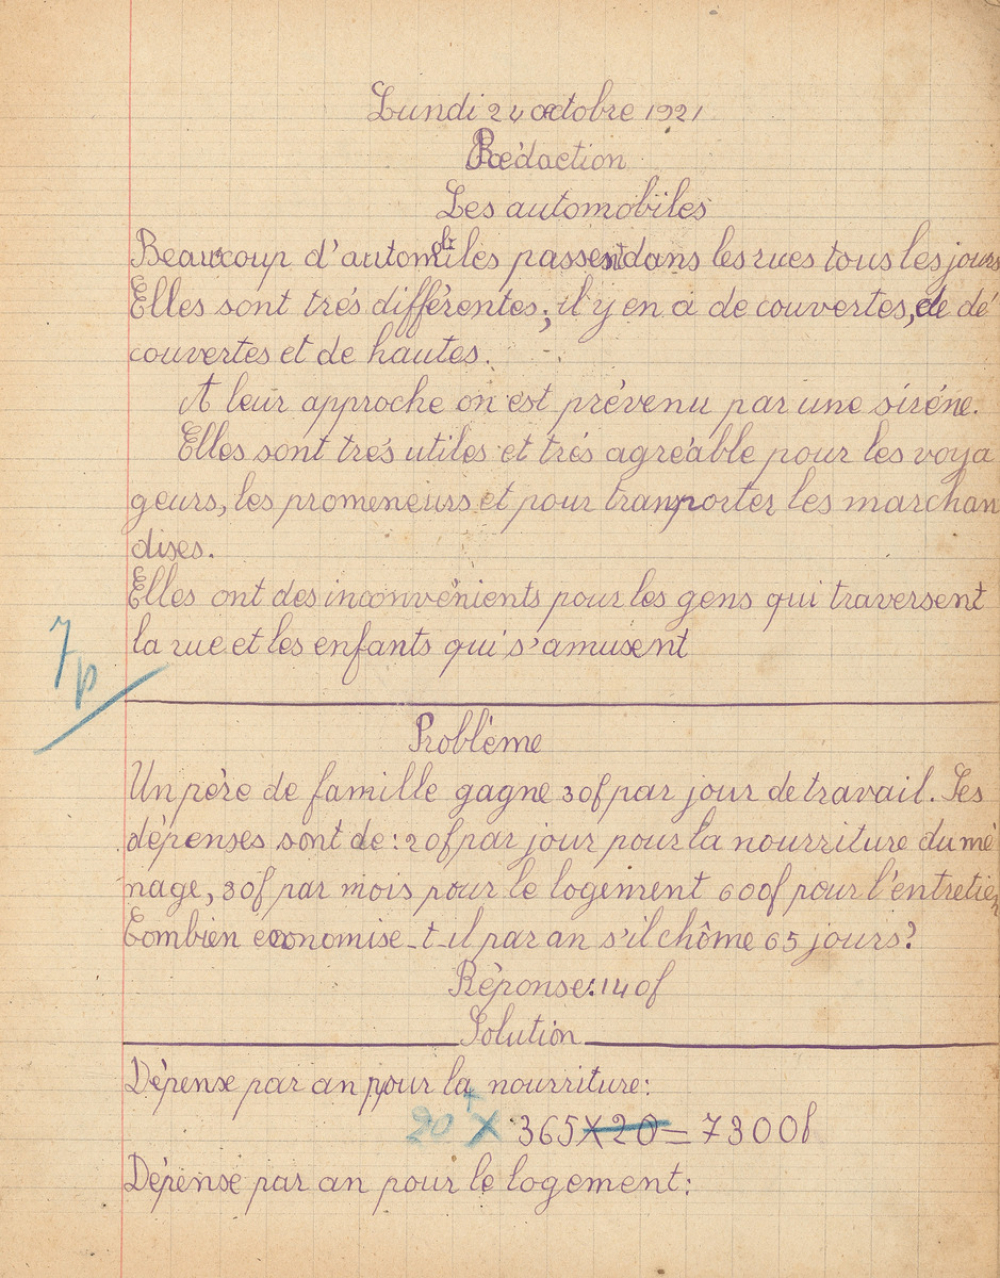 Lundi 24 octobre 1921
Rédaction
Les automobiles
Beaucoup d'automobiles passent dans les rues tous les jours
Elles sont très différentes; il y en a de couvertes, de dé
couvertes et de hautes.
A leur approche on est prévenu par une sirène.
Elles sont très utiles et très agréable pour les voya
geurs, les promeneurs et pour tranporter les marchan
dises.
Elles ont des inconvénients pour les gens qui traversent
la rue et les enfants qui s'amusent
7
p
Problème
Un père de famille gagne 30f par jour de travail. Ses
dépenses sont de: 20f par jour pour la nourriture du mé
nage, 30f par mois pour le logement 600f pour l'entretien
Combien economise-t-il par an s'il chôme 65 jours?
Réponse: 140f
Solution
Dépense par an pour la nourriture:
20f X 365 X 20 = 7300f
Dépense par an pour le logement: